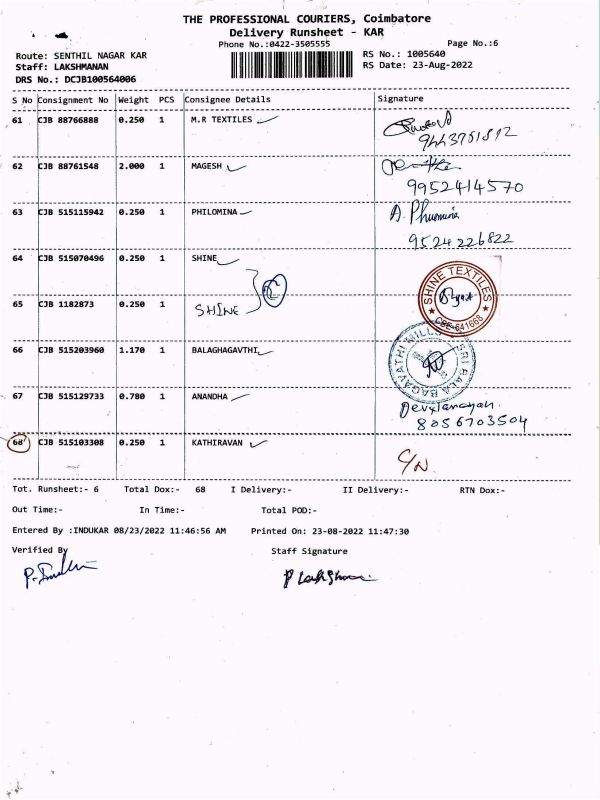 THE PROFESSIONAL COURIERS, Coimbatore
Delivery Runsheet - KAR
Phone No.:0422-3505555
Page No.:6
Route: SENTHIL NAGAR KAR
RS No.: 1005640
Staff: LAKSHMANAN
RS Date: 23-Aug-2022
DRS No.: DCJB100564006
S No Consignment No Weight PCS Consignee Details Signature
61 CJB 88766888 0.250 1 M.R TEXTILES
9443751812
62 CJB 88761548 2.000 1 MAGESH
9952414570
63 CJB 515115942 0.250 1 PHILOMINA
9524226822
64 CJB 515070496 0.250 1 SHINE
SHINE TEXTILES
CBE-641668
65 CJB 1182873 0.250 1 SHINE
66 CJB 515203960 1.170 1 BALAGHAGAVTHI
SRI BALA BAGAVATHI MILLS
67 CJB 515129733 0.780 1 ANANDHA
8056703504
68 CJB 515103308 0.250 1 KATHIRAVAN
C/N
Tot. Runsheet:- 6 Total Dox:- 68 I Delivery:- II Delivery:- RTN Dox:-
Out Time:- In Time:- Total POD:-
Entered By :INDUKAR 08/23/2022 11:46:56 AM Printed On: 23-08-2022 11:47:30
Verified By Staff Signature